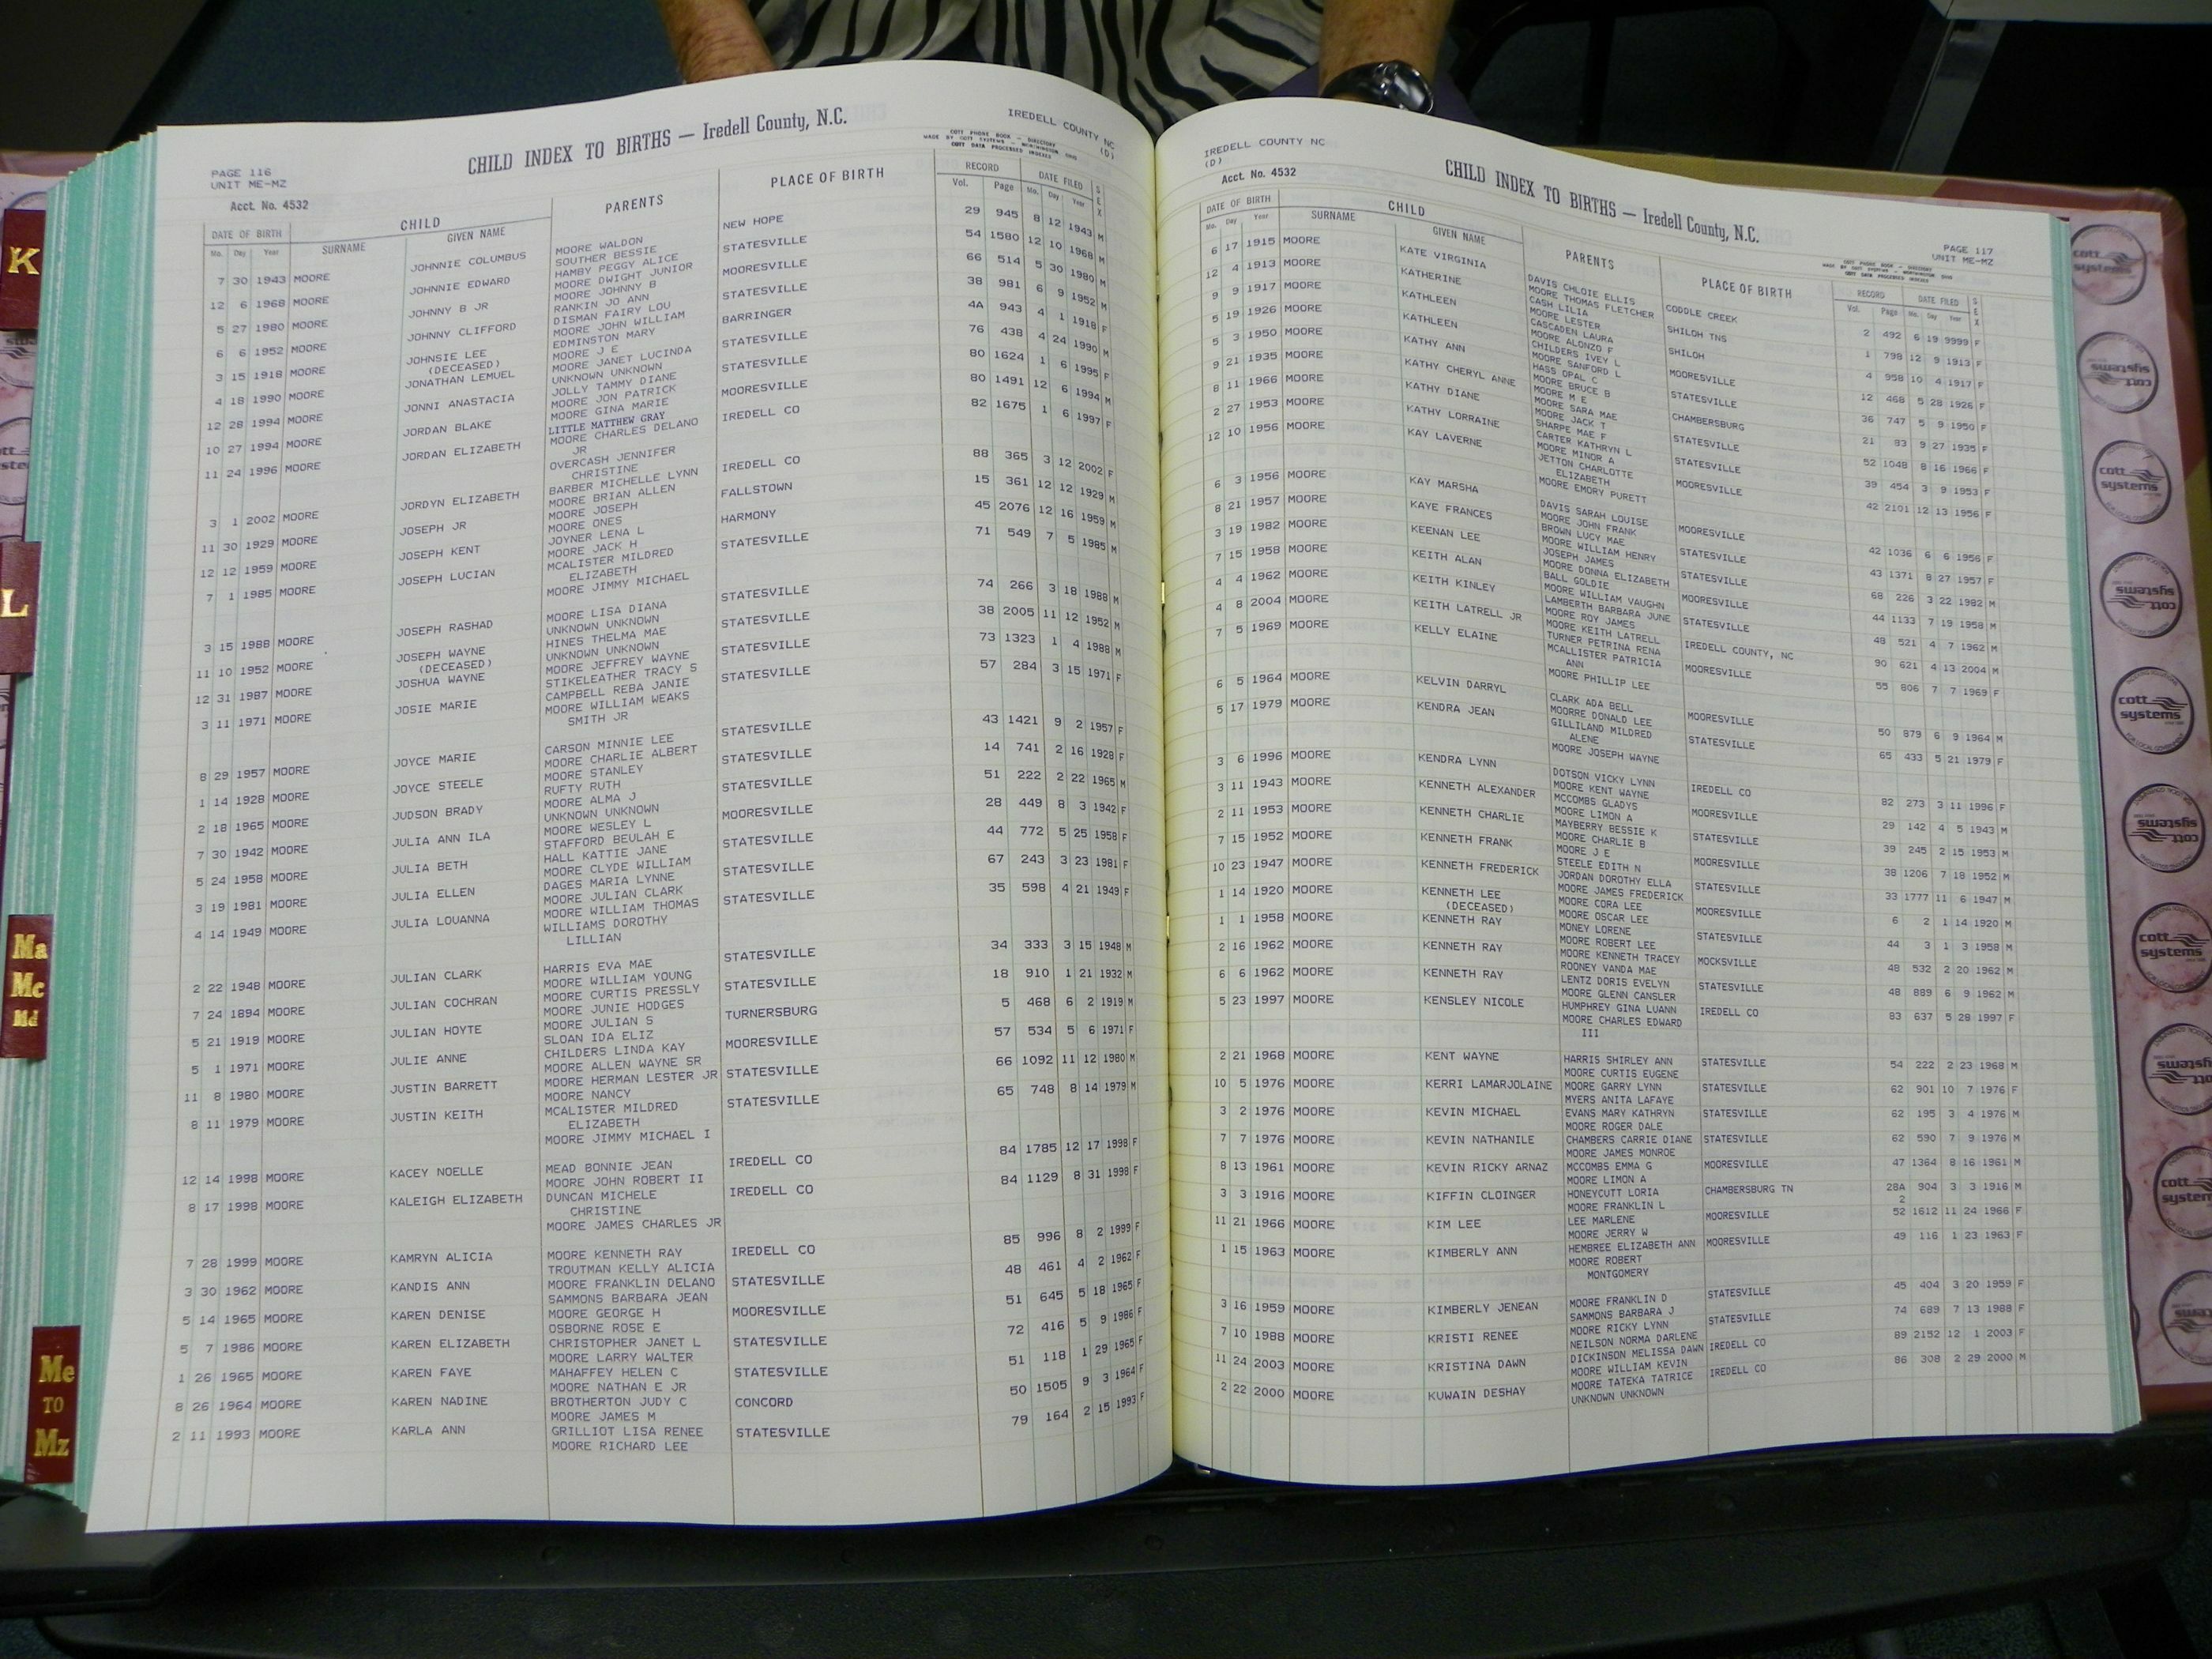 IREDELL COUNTY NC
(D)
PAGE 116
UNIT ME-MZ
Acct. No. 4532
CHILD INDEX TO BIRTHS — Iredell County, N.C.
COTT PHONE BOOK - DIRECTORY
MADE BY COTT SYSTEMS - WORTHINGTON OHIO
COTT DATA PROCESSED INDEXES
DATE OF BIRTH CHILD PARENTS PLACE OF BIRTH RECORD DATE FILED SEX
Mo. Day Year SURNAME GIVEN NAME Vol. Page Mo. Day Year
7 30 1943 MOORE JOHNNIE COLUMBUS MOORE WALDON NEW HOPE 29 945 8 12 1943 M
SOUTHER BESSIE
12 6 1968 MOORE JOHNNIE EDWARD HAMBY PEGGY ALICE STATESVILLE 54 1580 12 10 1968 M
MOORE DWIGHT JUNIOR
5 27 1980 MOORE JOHNNY B JR MOORE JOHNNY B MOORESVILLE 66 514 5 30 1980 M
RANKIN JO ANN
6 6 1952 MOORE JOHNNY CLIFFORD DISMAN FAIRY LOU STATESVILLE 38 981 6 9 1952 M
MOORE JOHN WILLIAM
3 15 1918 MOORE JOHNSIE LEE EDMINSTON MARY BARRINGER 4A 943 4 1 1918 F
(DECEASED) MOORE J E
4 18 1990 MOORE JONATHAN LEMUEL MOORE JANET LUCINDA STATESVILLE 76 438 4 24 1990 M
UNKNOWN UNKNOWN
12 28 1994 MOORE JONNI ANASTACIA JOLLY TAMMY DIANE STATESVILLE 80 1624 1 6 1995 F
MOORE JON PATRICK
10 27 1994 MOORE JORDAN BLAKE MOORE GINA MARIE MOORESVILLE 80 1491 12 6 1994 M
LITTLE MATTHEW GRAY
11 24 1996 MOORE JORDAN ELIZABETH MOORE CHARLES DELANO IREDELL CO 82 1675 1 6 1997 F
JR
OVERCASH JENNIFER
CHRISTINE
3 1 2002 MOORE JORDYN ELIZABETH BARBER MICHELLE LYNN IREDELL CO 88 365 3 12 2002 F
MOORE BRIAN ALLEN
11 30 1929 MOORE JOSEPH JR MOORE JOSEPH FALLSTOWN 15 361 12 12 1929 M
MOORE ONES
12 12 1959 MOORE JOSEPH KENT JOYNER LENA L HARMONY 45 2076 12 16 1959 M
MOORE JACK H
7 1 1985 MOORE JOSEPH LUCIAN MCALISTER MILDRED STATESVILLE 71 549 7 5 1985 M
ELIZABETH
MOORE JIMMY MICHAEL
3 15 1988 MOORE JOSEPH RASHAD MOORE LISA DIANA STATESVILLE 74 266 3 18 1988 M
UNKNOWN UNKNOWN
11 10 1952 MOORE JOSEPH WAYNE HINES THELMA MAE STATESVILLE 38 2005 11 12 1952 M
(DECEASED) UNKNOWN UNKNOWN
12 31 1987 MOORE JOSHUA WAYNE MOORE JEFFREY WAYNE STATESVILLE 73 1323 1 4 1988 M
STIKELEATHER TRACY S
3 11 1971 MOORE JOSIE MARIE CAMPBELL REBA JANIE STATESVILLE 57 284 3 15 1971 F
MOORE WILLIAM WEAKS
SMITH JR
8 29 1957 MOORE JOYCE MARIE CARSON MINNIE LEE STATESVILLE 43 1421 9 2 1957 F
MOORE CHARLIE ALBERT
1 14 1928 MOORE JOYCE STEELE MOORE STANLEY STATESVILLE 14 741 2 16 1928 F
RUFTY RUTH
2 18 1965 MOORE JUDSON BRADY MOORE ALMA J STATESVILLE 51 222 2 22 1965 M
UNKNOWN UNKNOWN
7 30 1942 MOORE JULIA ANN ILA MOORE WESLEY L MOORESVILLE 28 449 8 3 1942 F
STAFFORD BEULAH E
5 24 1958 MOORE JULIA BETH HALL KATTIE JANE STATESVILLE 44 772 5 25 1958 F
MOORE CLYDE WILLIAM
3 19 1981 MOORE JULIA ELLEN DAGES MARIA LYNNE STATESVILLE 67 243 3 23 1981 F
MOORE JULIAN CLARK
4 14 1949 MOORE JULIA LOUANNA MOORE WILLIAM THOMAS STATESVILLE 35 598 4 21 1949 F
WILLIAMS DOROTHY
LILLIAN
2 22 1948 MOORE JULIAN CLARK HARRIS EVA MAE STATESVILLE 34 333 3 15 1948 M
MOORE WILLIAM YOUNG
7 24 1894 MOORE JULIAN COCHRAN MOORE CURTIS PRESSLY STATESVILLE 18 910 1 21 1932 M
MOORE JUNIE HODGES
5 21 1919 MOORE JULIAN HOYTE MOORE JULIAN S TURNERSBURG 5 468 6 2 1919 M
SLOAN IDA ELIZ
5 1 1971 MOORE JULIE ANNE CHILDERS LINDA KAY MOORESVILLE 57 534 5 6 1971 F
MOORE ALLEN WAYNE SR
11 8 1980 MOORE JUSTIN BARRETT MOORE HERMAN LESTER JR STATESVILLE 66 1092 11 12 1980 M
MOORE NANCY
8 11 1979 MOORE JUSTIN KEITH MCALISTER MILDRED STATESVILLE 65 748 8 14 1979 M
ELIZABETH
MOORE JIMMY MICHAEL I
12 14 1998 MOORE KACEY NOELLE MEAD BONNIE JEAN IREDELL CO 84 1785 12 17 1998 F
MOORE JOHN ROBERT II
8 17 1998 MOORE KALEIGH ELIZABETH DUNCAN MICHELE IREDELL CO 84 1129 8 31 1998 F
CHRISTINE
MOORE JAMES CHARLES JR
7 28 1999 MOORE KAMRYN ALICIA MOORE KENNETH RAY IREDELL CO 85 996 8 2 1999 F
TROUTMAN KELLY ALICIA
3 30 1962 MOORE KANDIS ANN MOORE FRANKLIN DELANO STATESVILLE 48 461 4 2 1962 F
SAMMONS BARBARA JEAN
5 14 1965 MOORE KAREN DENISE MOORE GEORGE H MOORESVILLE 51 645 5 18 1965 F
OSBORNE ROSE E
5 7 1986 MOORE KAREN ELIZABETH CHRISTOPHER JANET L STATESVILLE 72 416 5 9 1986 F
MOORE LARRY WALTER
1 26 1965 MOORE KAREN FAYE MAHAFFEY HELEN C STATESVILLE 51 118 1 29 1965 F
MOORE NATHAN E JR
8 26 1964 MOORE KAREN NADINE BROTHERTON JUDY C CONCORD 50 1505 9 3 1964 F
MOORE JAMES M
2 11 1993 MOORE KARLA ANN GRILLIOT LISA RENEE STATESVILLE 79 164 2 15 1993 F
MOORE RICHARD LEE
IREDELL COUNTY NC
(D)
Acct. No. 4532
CHILD INDEX TO BIRTHS — Iredell County, N.C.
PAGE 117
UNIT ME-MZ
COTT PHONE BOOK - DIRECTORY
MADE BY COTT SYSTEMS - WORTHINGTON OHIO
COTT DATA PROCESSED INDEXES
DATE OF BIRTH CHILD PARENTS PLACE OF BIRTH RECORD DATE FILED SEX
Mo. Day Year SURNAME GIVEN NAME Vol. Page Mo. Day Year
6 17 1915 MOORE KATE VIRGINIA DAVIS CHLOIE ELLIS CODDLE CREEK 2 492 6 19 9999 F
MOORE THOMAS FLETCHER
12 4 1913 MOORE KATHERINE CASH LILIA SHILOH TNS 1 798 12 9 1913 F
MOORE LESTER
9 9 1917 MOORE KATHLEEN CASCADEN LAURA SHILOH 4 958 10 4 1917 F
MOORE ALONZO F
5 19 1926 MOORE KATHLEEN CHILDERS IVEY L MOORESVILLE 12 468 5 28 1926 F
MOORE SANFORD L
5 3 1950 MOORE KATHY ANN HASS OPAL C STATESVILLE 36 747 5 9 1950 F
MOORE BRUCE B
9 21 1935 MOORE KATHY CHERYL ANNE MOORE M E CHAMBERSBURG 21 93 9 27 1935 F
MOORE SARA MAE
8 11 1966 MOORE KATHY DIANE MOORE JACK T STATESVILLE 52 1048 8 16 1966 F
SHARPE MAE F
2 27 1953 MOORE KATHY LORRAINE CARTER KATHRYN L STATESVILLE 39 454 3 9 1953 F
MOORE MINOR A
12 10 1956 MOORE KAY LAVERNE JETTON CHARLOTTE MOORESVILLE 42 2101 12 13 1956 F
ELIZABETH
MOORE EMORY PURETT
6 3 1956 MOORE KAY MARSHA DAVIS SARAH LOUISE MOORESVILLE 42 1036 6 6 1956 F
MOORE JOHN FRANK
8 21 1957 MOORE KAYE FRANCES BROWN LUCY MAE STATESVILLE 43 1371 8 27 1957 F
MOORE WILLIAM HENRY
3 19 1982 MOORE KEENAN LEE JOSEPH JAMES STATESVILLE 68 226 3 22 1982 M
MOORE DONNA ELIZABETH
7 15 1958 MOORE KEITH ALAN BALL GOLDIE MOORESVILLE 44 1133 7 19 1958 M
MOORE WILLIAM VAUGHN
4 4 1962 MOORE KEITH KINLEY LAMBERTH BARBARA JUNE STATESVILLE 48 521 4 7 1962 M
MOORE ROY JAMES
4 8 2004 MOORE KEITH LATRELL JR MOORE KEITH LATRELL IREDELL COUNTY, NC 90 621 4 13 2004 M
TURNER PETRINA RENA
7 5 1969 MOORE KELLY ELAINE MCALLISTER PATRICIA MOORESVILLE 55 806 7 7 1969 F
ANN
MOORE PHILLIP LEE
6 5 1964 MOORE KELVIN DARRYL CLARK ADA BELL MOORESVILLE 50 879 6 9 1964 M
MOORRE DONALD LEE
5 17 1979 MOORE KENDRA JEAN GILLILAND MILDRED STATESVILLE 65 433 5 21 1979 F
ALENE
MOORE JOSEPH WAYNE
3 6 1996 MOORE KENDRA LYNN DOTSON VICKY LYNN IREDELL CO 82 273 3 11 1996 F
MOORE KENT WAYNE
3 11 1943 MOORE KENNETH ALEXANDER MCCOMBS GLADYS MOORESVILLE 29 142 4 5 1943 M
MOORE LIMON A
2 11 1953 MOORE KENNETH CHARLIE MAYBERRY BESSIE K STATESVILLE 39 245 2 15 1953 M
MOORE CHARLIE B
7 15 1952 MOORE KENNETH FRANK MOORE J E MOORESVILLE 38 1206 7 18 1952 M
STEELE EDITH N
10 23 1947 MOORE KENNETH FREDERICK JORDAN DOROTHY ELLA STATESVILLE 33 1777 11 6 1947 M
MOORE JAMES FREDERICK
1 14 1920 MOORE KENNETH LEE MOORE CORA LEE MOORESVILLE 6 2 1 14 1920 M
(DECEASED) MOORE OSCAR LEE
1 1 1958 MOORE KENNETH RAY MONEY LORENE STATESVILLE 44 3 1 3 1958 M
MOORE ROBERT LEE
2 16 1962 MOORE KENNETH RAY MOORE KENNETH TRACEY MOCKSVILLE 48 532 2 20 1962 M
ROONEY VANDA MAE
6 6 1962 MOORE KENNETH RAY LENTZ DORIS EVELYN STATESVILLE 48 889 6 9 1962 M
MOORE GLENN CANSLER
5 23 1997 MOORE KENSLEY NICOLE HUMPHREY GINA LUANN IREDELL CO 83 637 5 28 1997 F
MOORE CHARLES EDWARD
III
2 21 1968 MOORE KENT WAYNE HARRIS SHIRLEY ANN STATESVILLE 54 222 2 23 1968 M
MOORE CURTIS EUGENE
10 5 1976 MOORE KERRI LAMARJOLAINE MOORE GARRY LYNN STATESVILLE 62 901 10 7 1976 F
MYERS ANITA LAFAYE
3 2 1976 MOORE KEVIN MICHAEL EVANS MARY KATHRYN STATESVILLE 62 195 3 4 1976 M
MOORE ROGER DALE
7 7 1976 MOORE KEVIN NATHANILE CHAMBERS CARRIE DIANE STATESVILLE 62 590 7 9 1976 M
MOORE JAMES MONROE
8 13 1961 MOORE KEVIN RICKY ARNAZ MCCOMBS EMMA G MOORESVILLE 47 1364 8 16 1961 M
MOORE LIMON A
3 3 1916 MOORE KIFFIN CLOINGER HONEYCUTT LORIA CHAMBERSBURG TN 28A 904 3 3 1916 M
MOORE FRANKLIN L 2
11 21 1966 MOORE KIM LEE LEE MARLENE MOORESVILLE 52 1612 11 24 1966 F
MOORE JERRY W
1 15 1963 MOORE KIMBERLY ANN HEMBREE ELIZABETH ANN MOORESVILLE 49 116 1 23 1963 F
MOORE ROBERT
MONTGOMERY
3 16 1959 MOORE KIMBERLY JENEAN MOORE FRANKLIN D STATESVILLE 45 404 3 20 1959 F
SAMMONS BARBARA J
7 10 1988 MOORE KRISTI RENEE MOORE RICKY LYNN STATESVILLE 74 689 7 13 1988 F
NEILSON NORMA DARLENE
11 24 2003 MOORE KRISTINA DAWN DICKINSON MELISSA DAWN IREDELL CO 89 2152 12 1 2003 F
MOORE WILLIAM KEVIN
2 22 2000 MOORE KUWAIN DESHAY MOORE TATEKA TATRICE IREDELL CO 86 308 2 29 2000 M
UNKNOWN UNKNOWN
K
L
Ma
Mc
Md
Me
TO
Mz
cott
systems
cott
systems
cott
systems
cott
systems
cott
systems
cott
systems
cott
systems
cott
systems
cott
systems